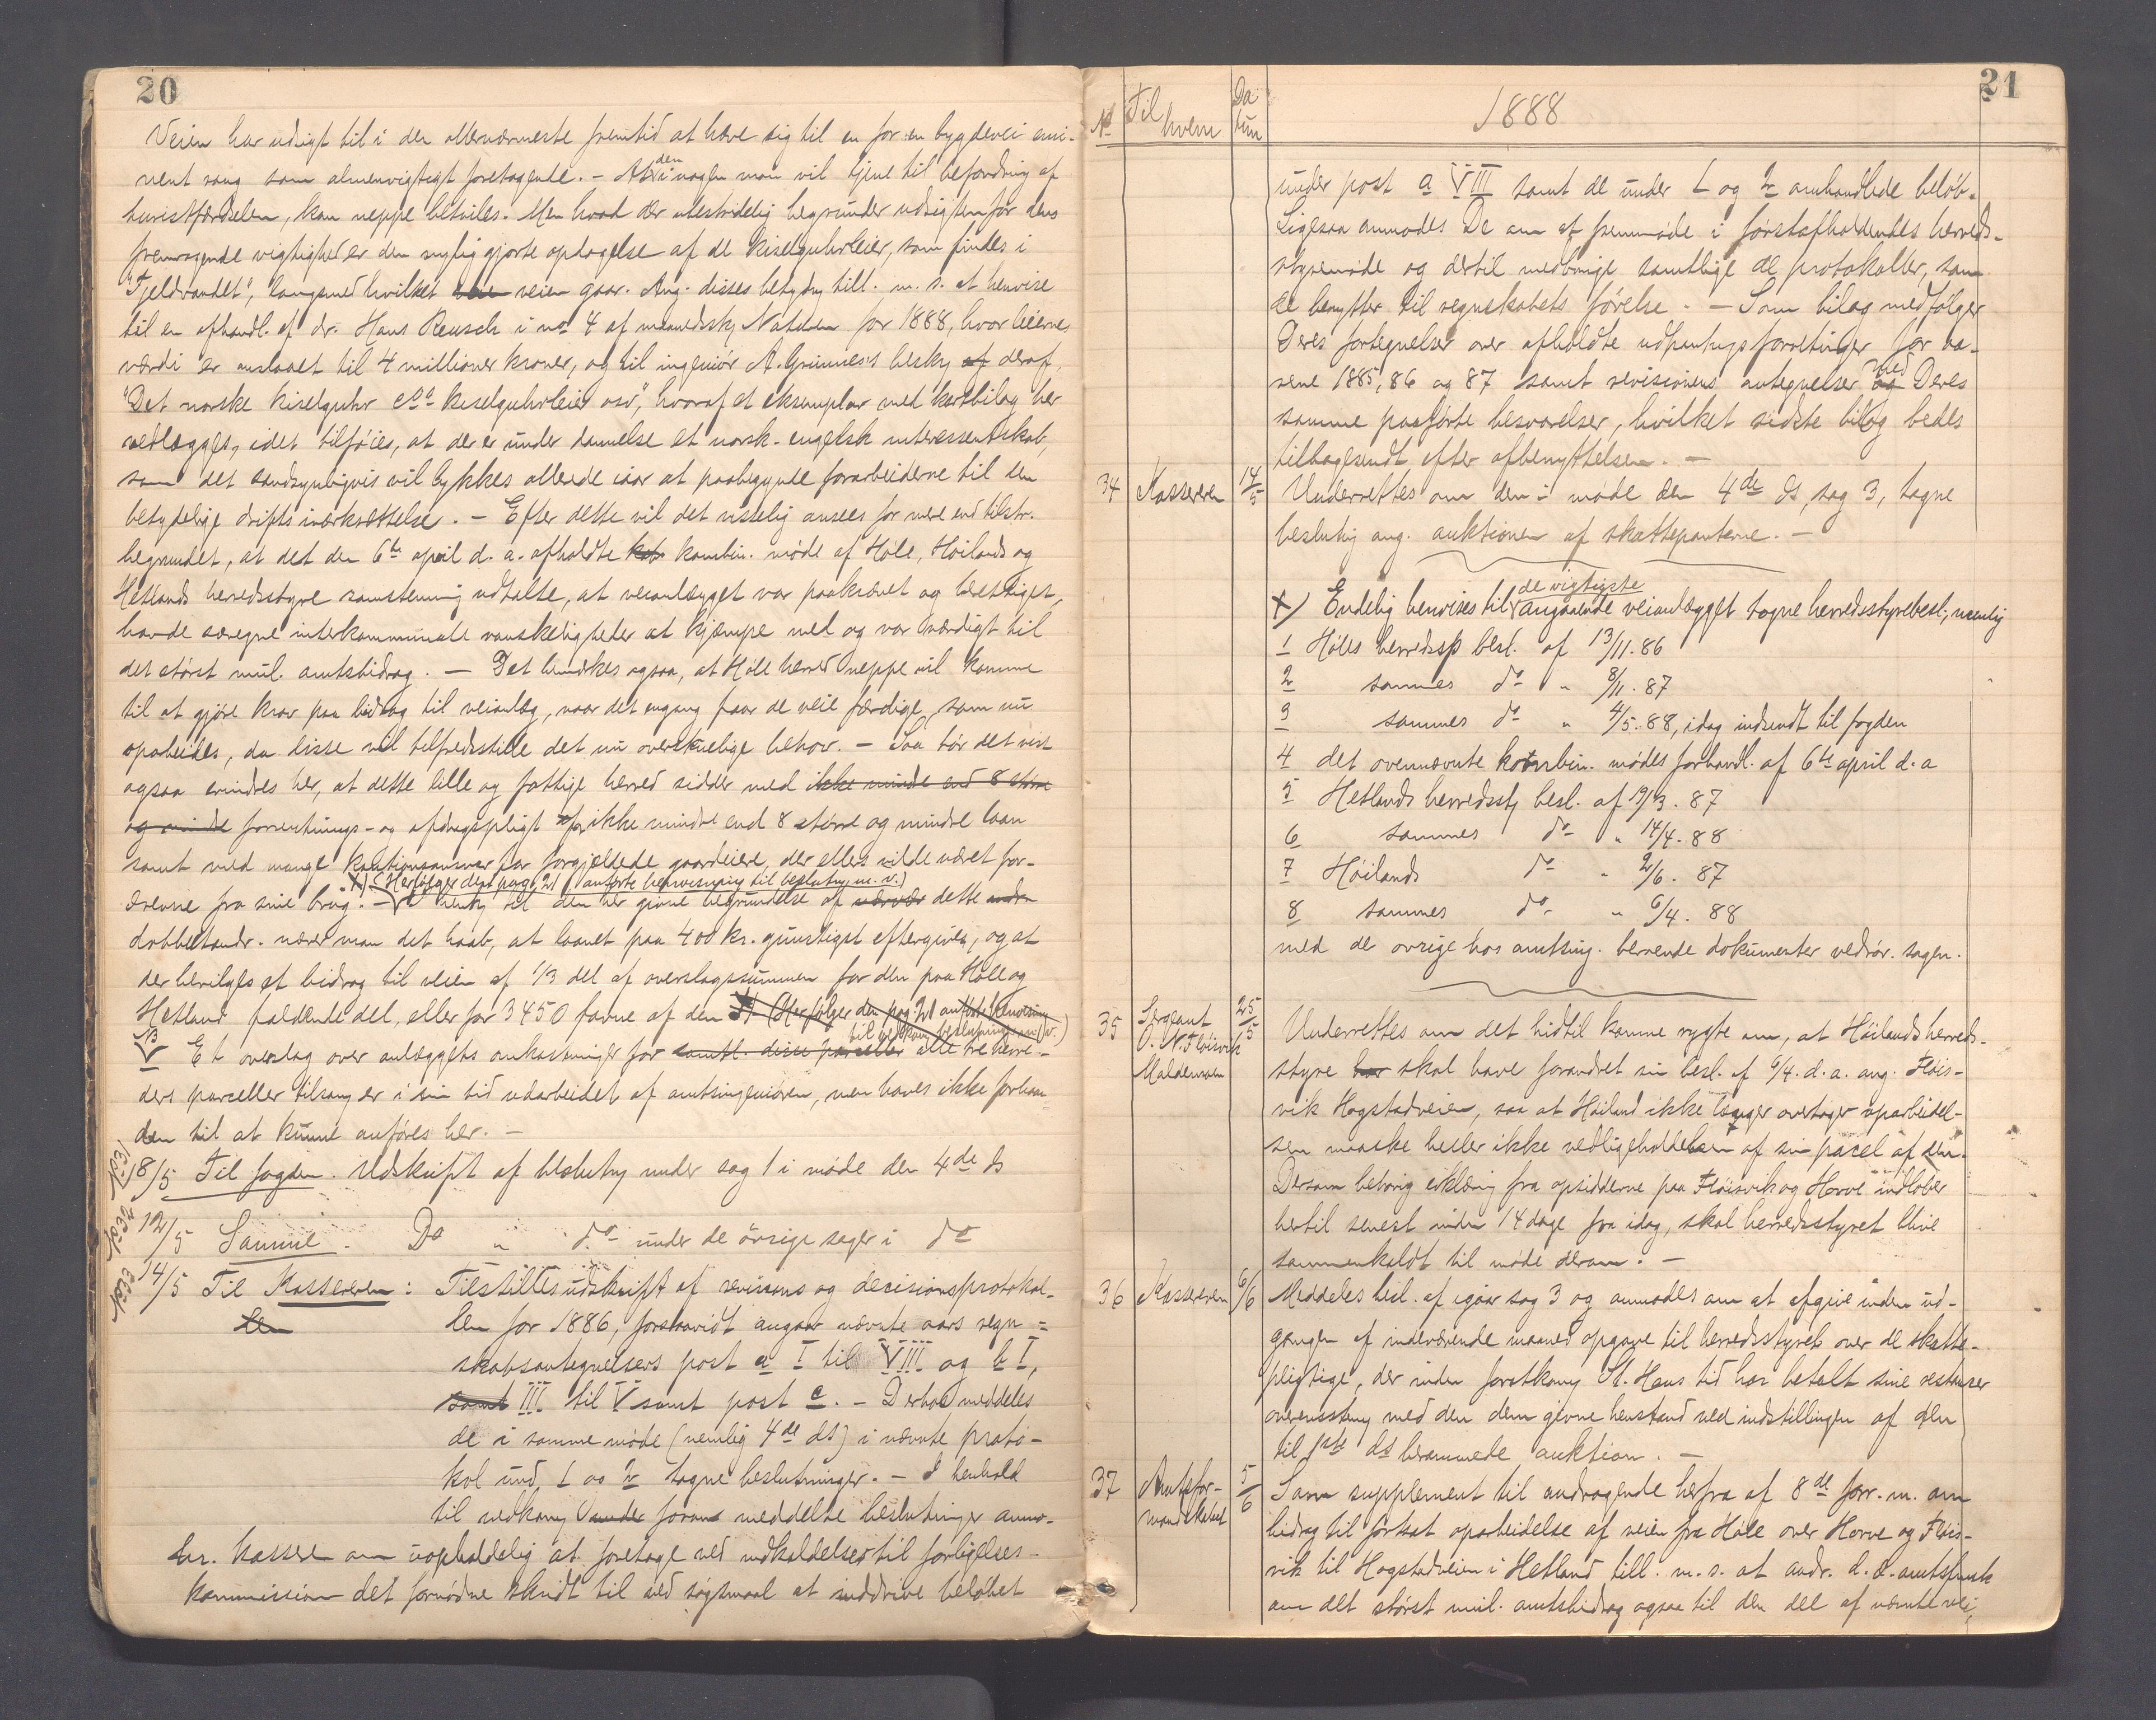 20
Veien har udsigt til i den allernærmeste fremtid at hæve sig til en for en bygdevei emi-
nent rang som almenvigtigt foretagende. - At den i nogen mon vil tjene til befordring af
turistfærdselen, kan neppe betviles. Men hvad der ubestridelig begrunder udsigten for dens
fremragende vigtighed er den nylig gjorte opdagelse af de kiselguhrleier, som findes i
"Fjeldvandet", langsmed hvilket veien gaar. Ang. disses betydng till. m. s. at henvise
til en afhandl. af dr. Hans Reusch i no 4 af maanedsskr Naturen for 1888, hvor leiernes
værdi er anslaaet til 4 millioner kroner, og til ingeniør A. Grimnes's beskr af deraf,
"Det norske kiselguhr kiselguhrleier osv", hvoraf et eksemplar med kartbilag her
vedlægges, idet tilføies, at der er under dannelse et norsk-engelsk interessentskab,
som det sandsynligvis vil lykkes allerede iaar at paabegynde forarbeiderne til den
betydelige drifts iværksættelse. - Efter dette vil det vistelig ansees for mere end tilstr.
begrundet, at det den 6te april d. a. afholdte kombin. møde af Høle, Høilands og
Hetlands herredsstyre samstemmig udtalte, at veianlægget var paakrævet og berettiget,
havde særegne interkommunale vanskeligheder at kjæmpe med og var værdigt til
det størst mul. amtsbidrag. - Det bemærkes ogsaa, at Høle herred neppe vil komme
til at gjøre krav paa bidrag til veianlæg, naar det engang faar de veie færdige, som nu
oparbeides, da disse vil tilfredsstille det nu overskuelige behov. - Saa bør det vist
ogsaa erindres her, at dette lille og fattige herred sidder med ikke mindre end 8 større
og mindre forrentnings- og afdragspligt for ikke mindre end 8 større og mindre laan
samt med mange kautionsansvar for forgjældede gaardeiere, der ellers vilde været for-
X) (Herfølger den pag. 21 anførte henvisning til beslutng m. v.)
drevne fra sine brug. - I henhg til den her givne begrundelse af dette
dobbeltandr. nærer man det haab, at laanet paa 400 kr. gunstigst eftergives, og at
der bevilges et bidrag til veien af 1/3 del af overslagssummen for den paa Høle og
Hetland faldende del, eller for 3450 favne af den X (Herfølger den pag 21 anførte henvisning
til beslutning m. v.)
NB Et overslag over anlæggets omkostninger for samtl. disse parceller alle tre herre-
ders parceller tilsamn er i sin tid udarbeidet af amtsingeniøren, men haves ikke forhaan
den til at kunne anføres her. -
No 31 8/5 Til fogden. Udskrift af beslutng under sag 1 i møde den 4de ds
No 32 12/5 Samme. Do " do under de øvrige sager i do
No 33 14/5 Til Kassereren: Tilstilles udskrift af revisions og decisionsprotokol-
len
len for 1886, forsaavidt angaar nævnte aars regn=
skabsantegnelsers post a I til VIII og b I,
samt III til V samt post c. - Derhos meddeles
de i samme møde (nemlig 4de ds) i nævnte proto-
kol und. 1 og 2 tagne beslutninger. - I henhold
til vedkomg under foran meddelte beslutninger anmo-
hr. kasserer om uopholdelig at foretage ved indkaldelser til forligelses-
kommission det fornødne skridt til ved søgsmaal at inddrive beløbet
21
No Til hvem Da tum 1888
under post a VIII samt de under 1 og 2 omhandlede beløb.
Ligesaa anmodes De om at fremmøde i førstafholdendes herreds-
styremøde og dertil medbringe samtlige de protokoller, som
de benytter til regnskabets førelse. - Som bilag medfølger
Deres fortegnelser over afholdte udpantngsforretninger for aa-
rene 1885, 86 og 87 samt revisionens antegnelser og med Deres
samme paaførte besvarelser, hvilket sidste bilag bedes
tilbagesendt efter afbenyttelsen. -
34 Kassereren 14/5 Underrettes om den i møde den 4de ds, sag 3, tagne
beslutng ang. auktionen af skattepanterne. -
X) Endelig henvises til de vigtigste angaaende veianlægget tagne herredsstyrebesl., nemlig
1 Høles herredsst besl. af 13/11. 86
2 sammes do " 8/11. 87
3 sammes do " 4/5. 88, idag indsendt til fogden
4 det ovennævnte kombin. mødes forhandl. af 6te april d. a
5 Hetlands herredssty besl. af 19/3. 87
6 sammes do " 14/4. 88
7 Høilands do " 2/6. 87
8 sammes do " 6/4. 88
med de øvrige hos amtsing. beroende dokumenter vedrør. sagen.
35 Sergeant O. N. Fløisvik Maldemoen 25/5 Underrettes om det hidtil komne rygte om, at Høilands herreds-
styre har skal have forandret sin besl. af 6/4. d. a. ang. Fløis-
vik Hogstadveien, saa at Høiland ikke længer overtager oparbeidel-
sen maaske heller ikke vedligeholdelsen af sin parcel af den.
Dersom behørig erklæring fra opsidderne paa Fløisvik og Horve indløber
hertil senest inden 14 dage fra idag, skal herredsstyret blive
sammenkaldt til møde derom. -
36 Kassereren 6/6 Meddeles besl. af igaar sag 3 og anmodes om at afgive inden ud-
gangen af indeværende maaned opgave til herredsstyret over de skatte-
pligtige, der inden forstkomg St. Hans tid har betalt sine restanser
overensstemg med den dem givne henstand ved indstillingen af den
til 1ste ds berammede auktion. -
37 Amtsfor-mandskabet 5/6 Som supplement til andragende herfra af 8de forr. m. om
bidrag til fortsat oparbeidelse af veien fra Høle over Horve og Fløis-
vik til Hogstadveien i Hetland till. m. s. at andr. d. æ. amtsfmsk
om det størst mul. amtsbidrag ogsaa til den del af nævnte vei,